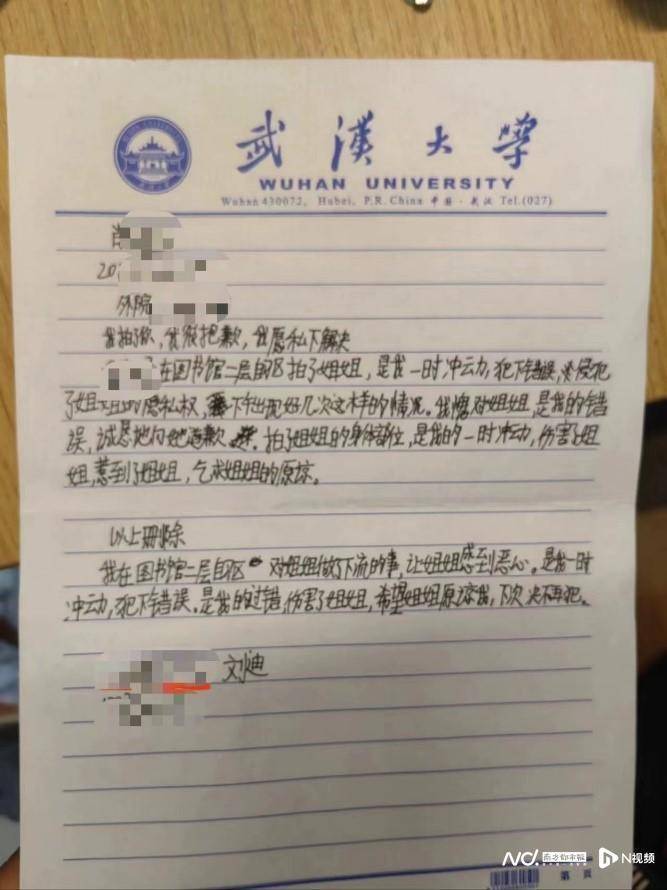 武漢大學
WUHAN UNIVERSITY
Wuhan 430072, Hubei, P.R. China 中国·武汉 Tel.(027)
肖
20
外院
我拍了你,我很抱歉,我愿私下解决
在图书馆二层自习区拍了姐姐,是我一时冲动,犯下错误,侵犯
了姐姐的隐私权,下午出现好几次这样的情况。我愧对姐姐,是我的错
误,诚恳地向她道歉。拍了姐姐的身体部位,是我的一时冲动,伤害了姐
姐,惹到了姐姐,乞求姐姐的原谅。
以上删除
我在图书馆二层自习区 对姐姐做了下流的事,让姐姐感到恶心。是我一时
冲动,犯下错误。是我的过错伤害了姐姐,希望姐姐原谅我,下次决不再犯。
刘迪
N视频
第 页